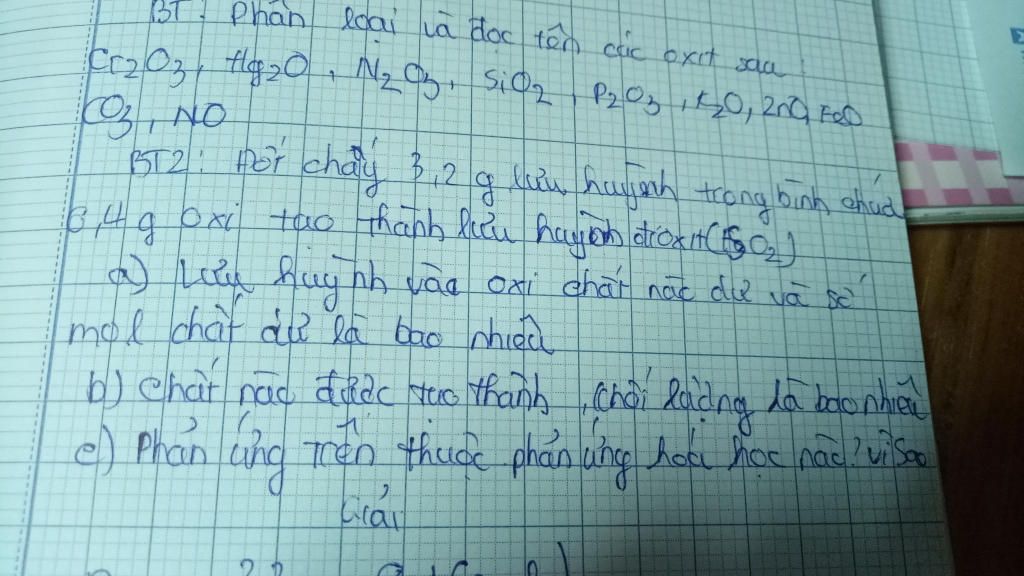 BT: phân loại và đọc tên các oxit sau:
Cr2O3, Hg2O, N2O3, SiO2, P2O3, K2O, ZnO, FeO
CO3, NO
BT2: Đốt cháy 3,2 g lưu huỳnh trong bình chứa
6,4 g oxi tạo thành lưu huỳnh đioxit (SO2)
a) Lưu huỳnh vào oxi chất nào dư và số
mol chất dư là bao nhiêu
b) chất nào được tạo thành, khối lượng là bao nhiêu
c) phản ứng trên thuộc phản ứng hoá học nào? vì sao
Giải